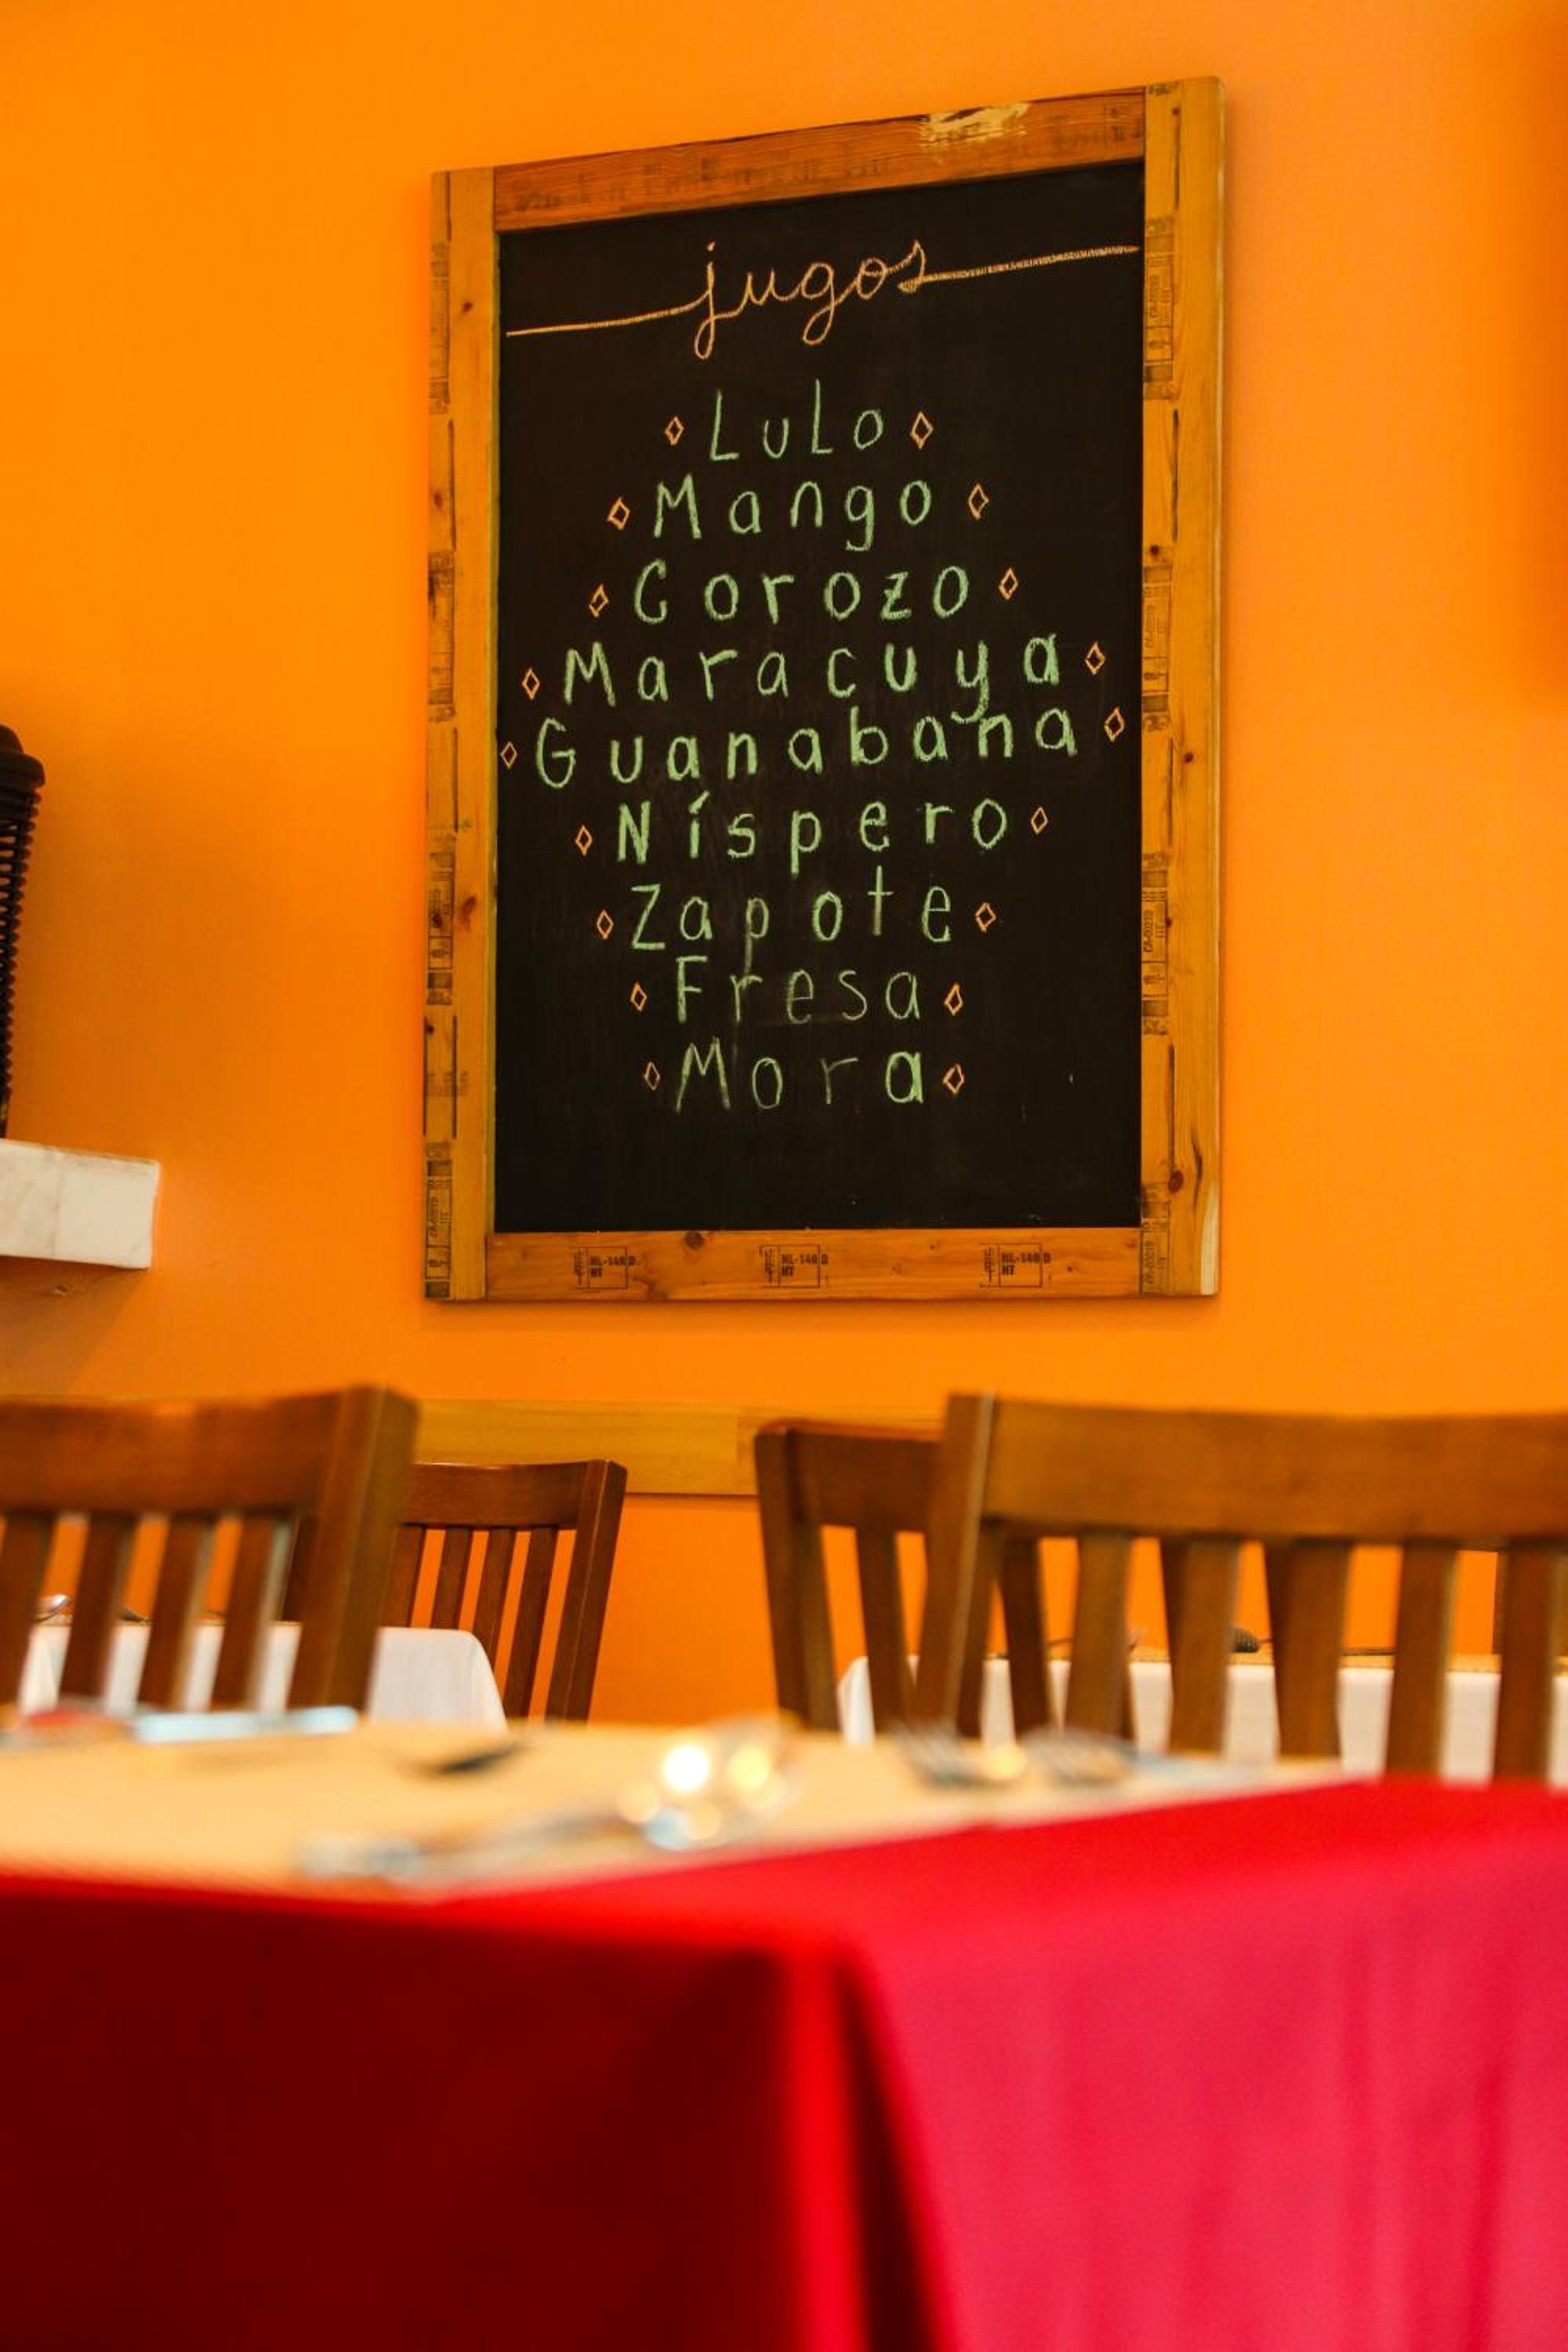 jugos
Lulo
Mango
Corozo
Maracuya
Guanabana
Níspero
Zapote
Fresa
Mora
HL-140 D HL-140 D HL-140 D
HT HT HT